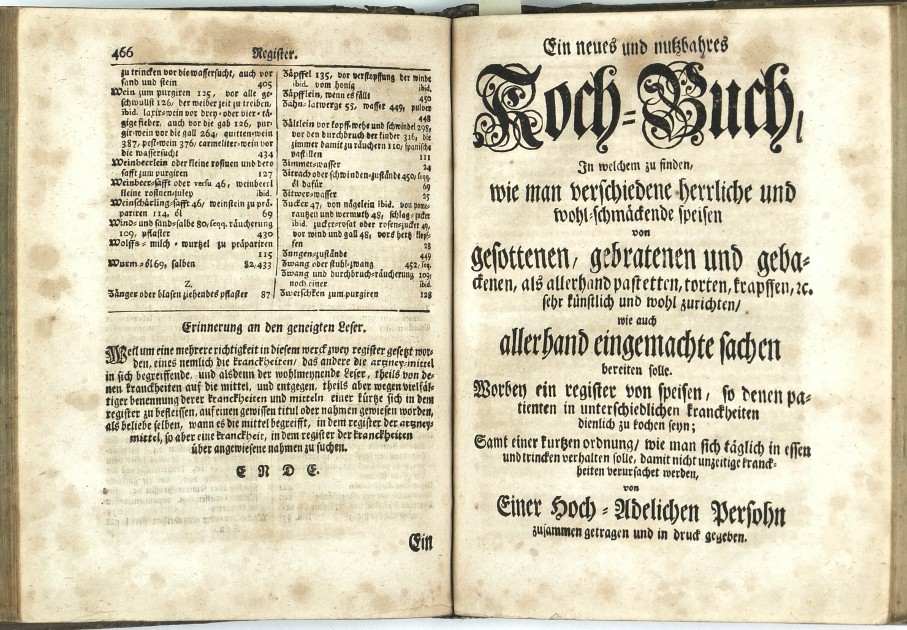 466 Register.
zu trincken vor die wassersucht, auch vor
sand und stein 405
Wein zum purgiren 125, vor alle ge-
schwulst 126, der weiber zeit zu treiben,
ibid. laxir-wein vor drey- oder vier-tä-
gige fieber, auch vor die gäh 126, pur-
gir-wein vor die gall 264, quitten-wein
387, pest-wein 376, carmeliter-wein vor
die wassersucht 434
Weinbeerlein oder kleine rosinen und dero
safft zum purgiren 127
Weinbeer-safft oder versu 46, weinbeerl
kleine rosinen-julep ibid.
Weinschärling-safft 46, weinstein zu prä-
pariren 114, öl 69
Wind- und sand-salbe 80, seqq. räucherung
109, pflaster 430
Wolffs-milch-wurtzel zu präpariren
115
Wurm-öl 69, salben 82,433
Z.
Zänger oder blasen ziehendes pflaster 87
Zäpffel 135, vor verstopffung der winde
ibid. vom honig ibid.
Zäpfflein, wenn es fällt 450
Zahn-latwerge 55, wasser 449, pulver
448
Zältlein vor kopff-wehe und schwindel 298,
vor den durchbruch der kinder 316, die
zimmer damit zu räuchern 110, spanische
pastillen 111
Zimmet-wasser 24
Zitrach oder schwinden-zustände 450, seq.
öl dafür 69
Zitwer-wasser 25
Zucker 47, von nägelein ibid. von pome-
rantzen und wermuth 48, schlag-zucker
ibid. zucker-rosat oder rosen-zucker 49,
vor wind und gall 48, vors hertz-klopf-
fen 28
Zungen-zustände 449
Zwang oder stuhl-zwang 452, seq.
Zwang und durchbruch-räucherung 109,
noch einer ibid.
Zwetschken zum purgiren 128
Erinnerung an den geneigten Leser.
Weil um eine mehrere richtigkeit in diesem werck zwey register gesetzt wor-
den, eines nemlich die kranckheiten/ das andere die artzney-mittel
in sich begreiffende, und alsdenn der wohlmeynende Leser, theils von de-
nen kranckheiten auf die mittel, und entgegen, theils aber wegen vielfäl-
tiger benennung derer kranckheiten und mitteln einer kürtze sich in dem
register zu befleissen, auf einen gewissen titul oder nahmen gewiesen worden,
als beliebe selben, wann es die mittel begreifft, in dem register der artzney-
mittel, so aber eine kranckheit, in dem register der kranckheiten
über angewiesene nahmen zu suchen.
E N D E.
Ein
Ein neues und nutzbahres
Koch-Buch,
In welchem zu finden,
wie man verschiedene herrliche und
wohl-schmäckende speisen
von
gesottenen, gebratenen und geba-
ckenen, als allerhand pastetten, torten, krapffen, ꝛc.
sehr künstlich und wohl zurichten/
wie auch
allerhand eingemachte sachen
bereiten solle.
Worbey ein register von speisen, so denen pa-
tienten in unterschiedlichen kranckheiten
dienlich zu kochen seyn;
Samt einer kurtzen ordnung/ wie man sich täglich in essen
und trincken verhalten solle, damit nicht unzeitige kranck-
heiten verursachet werden,
von
Einer Hoch-Adelichen Persohn
zusammen getragen und in druck gegeben.